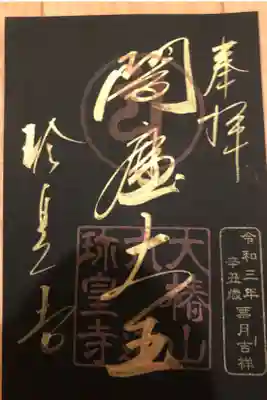 奉拝
閻魔大王
珍皇寺
大椿山
六
珍皇寺
令和三年
辛丑歳月吉祥